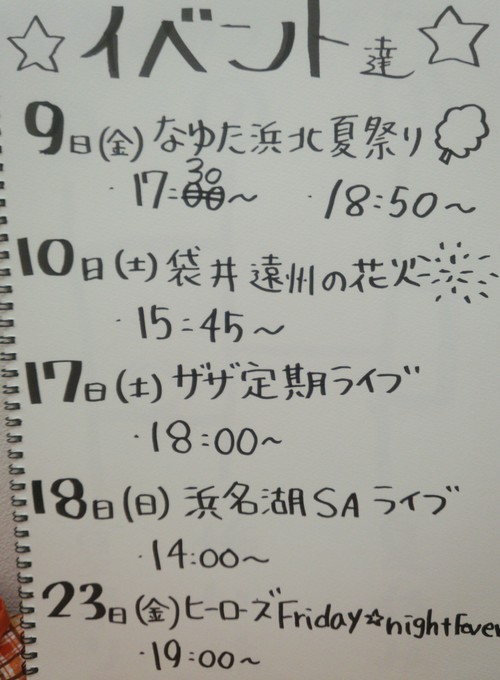 ☆イベント達☆
9日(金)なゆた浜北夏祭り
・17:30~ ・18:50~
10日(土)袋井遠州の花火
・15:45~
17日(土)ザザ定期ライブ
・18:00~
18日(日)浜名湖SAライブ
・14:00~
23日(金)ヒーローズFriday☆nightFever
・19:00~